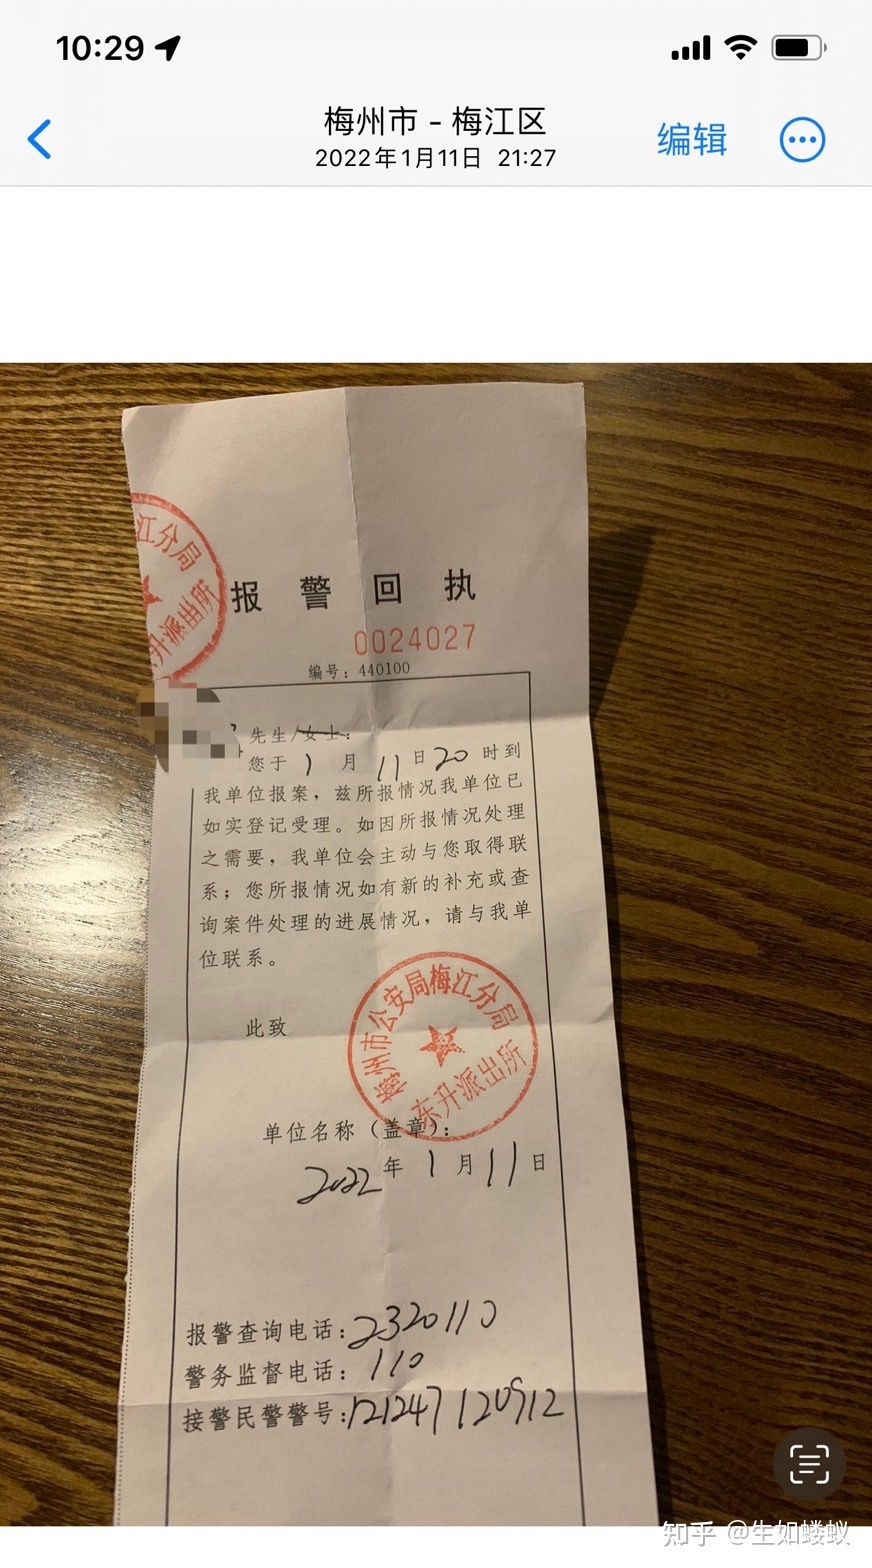 10:29
梅州市 - 梅江区
2022年1月11日 21:27
编辑
江分局
东升派出所
报 警 回 执
0024027
编号：440100
先生/女士：
您于 1 月 11 日 20 时到
我单位报案，兹所报情况我单位已
如实登记受理。如因所报情况处理
之需要，我单位会主动与您取得联
系；您所报情况如有新的补充或查
询案件处理的进展情况，请与我单
位联系。
此致
梅州市公安局梅江分局
东升派出所
单位名称（盖章）：
2022 年 1 月 11 日
报警查询电话：2320110
警务监督电话：110
接警民警警号：121247 120912
知乎 @生如蝼蚁